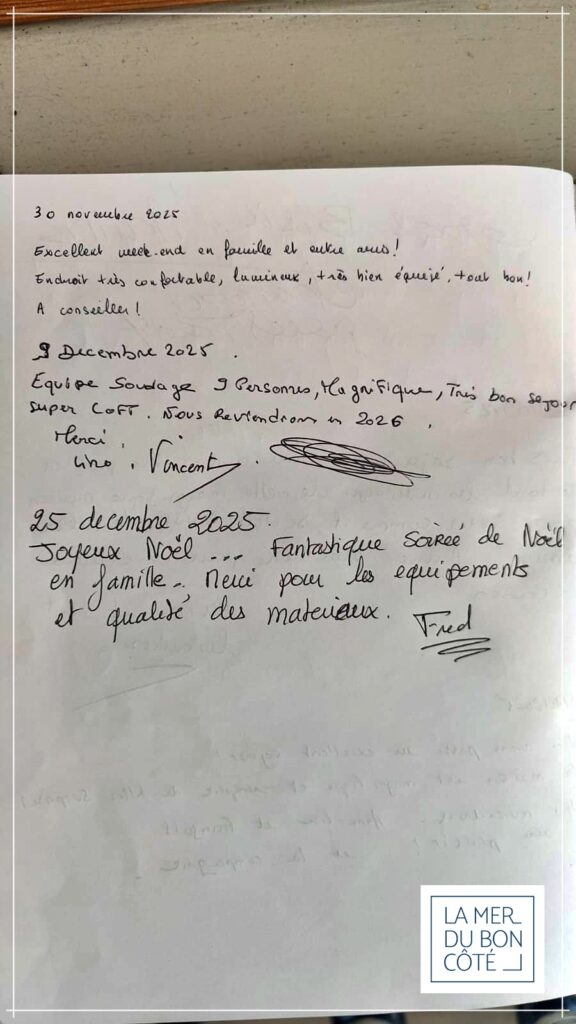 30 novembre 2025
Excellent week-end en famille et entre amis!
Endroit très confortable, lumineux, très bien équipé, tout bon!
A conseiller!
9 Decembre 2025.
Equipe Soudage 9 Personnes, Magnifique, Très bon sejour
super LOFT. Nous Reviendrons en 2026.
Merci,
Vincent
25 decembre 2025.
Joyeux Noël ... Fantastique Soireé de Noël
en famille.. Merci pour les equipements
et qualité des materiaux.
Fred
LA MER
DU BON
CÔTÉ